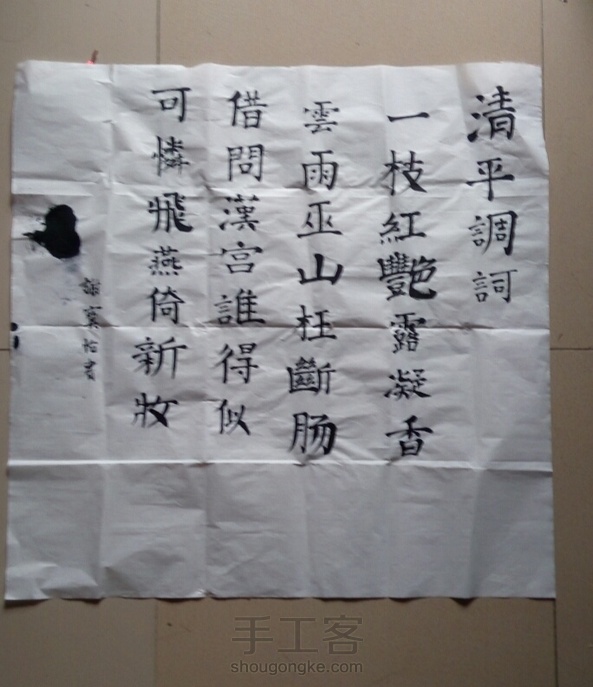 清平調詞
一枝紅艷露凝香
雲雨巫山枉斷肠
借問漢宫誰得似
可憐飛燕倚新妝
手工客
shougongke.com